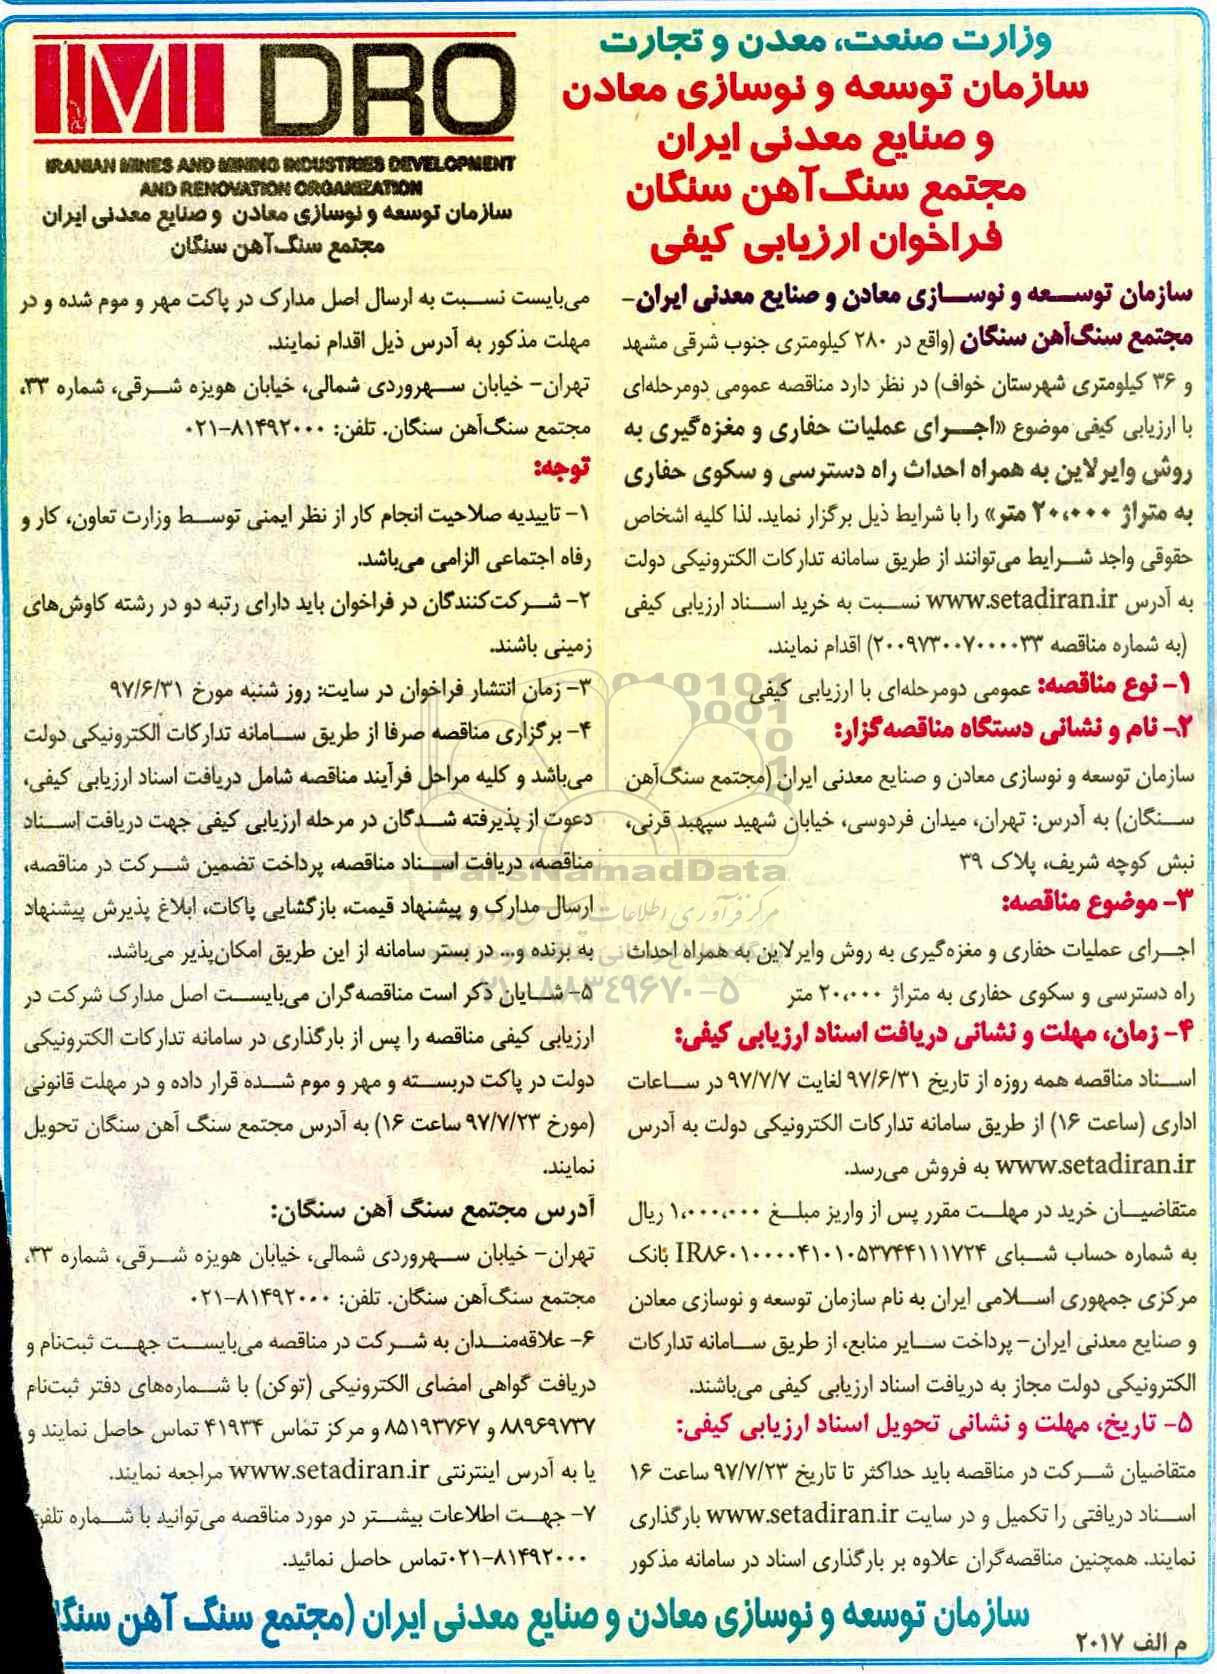 IMIDRO
IRANIAN MINES AND MINING INDUSTRIES DEVELOPMENT
AND RENOVATION ORGANIZATION
سازمان توسعه و نوسازی معادن و صنایع معدنی ایران
مجتمع سنگ‌آهن سنگان
وزارت صنعت، معدن و تجارت
سازمان توسعه و نوسازی معادن
و صنایع معدنی ایران
مجتمع سنگ‌آهن سنگان
فراخوان ارزیابی کیفی
سازمان توسعه و نوسازی معادن و صنایع معدنی ایران-
مجتمع سنگ‌آهن سنگان (واقع در ۲۸۰ کیلومتری جنوب شرقی مشهد
و ۳۶ کیلومتری شهرستان خواف) در نظر دارد مناقصه عمومی دومرحله‌ای
با ارزیابی کیفی موضوع «اجرای عملیات حفاری و مغزه‌گیری به
روش وایرلاین به همراه احداث راه دسترسی و سکوی حفاری
به متراژ ۲۰،۰۰۰ متر» را با شرایط ذیل برگزار نماید. لذا کلیه اشخاص
حقوقی واجد شرایط می‌توانند از طریق سامانه تدارکات الکترونیکی دولت
به آدرس www.setadiran.ir نسبت به خرید اسناد ارزیابی کیفی
(به شماره مناقصه ۲۰۰۹۷۳۰۰۷۰۰۰۰۳۳) اقدام نمایند.
۱- نوع مناقصه: عمومی دومرحله‌ای با ارزیابی کیفی
۲- نام و نشانی دستگاه مناقصه‌گزار:
سازمان توسعه و نوسازی معادن و صنایع معدنی ایران (مجتمع سنگ‌آهن
سنگان) به آدرس: تهران، میدان فردوسی، خیابان شهید سپهبد قرنی،
نبش کوچه شریف، پلاک ۳۹
۳- موضوع مناقصه:
اجرای عملیات حفاری و مغزه‌گیری به روش وایرلاین به همراه احداث
راه دسترسی و سکوی حفاری به متراژ ۲۰،۰۰۰ متر
۴- زمان، مهلت و نشانی دریافت اسناد ارزیابی کیفی:
اسناد مناقصه همه روزه از تاریخ ۹۷/۶/۳۱ لغایت ۹۷/۷/۷ در ساعات
اداری (ساعت ۱۶) از طریق سامانه تدارکات الکترونیکی دولت به آدرس
www.setadiran.ir به فروش می‌رسد.
متقاضیان خرید در مهلت مقرر پس از واریز مبلغ ۱،۰۰۰،۰۰۰ ریال
به شماره حساب شبای IR۸۶۰۱۰۰۰۰۴۱۰۱۰۵۳۷۴۴۱۱۱۷۲۴ بانک
مرکزی جمهوری اسلامی ایران به نام سازمان توسعه و نوسازی معادن
و صنایع معدنی ایران- پرداخت سایر منابع، از طریق سامانه تدارکات
الکترونیکی دولت مجاز به دریافت اسناد ارزیابی کیفی می‌باشند.
۵- تاریخ، مهلت و نشانی تحویل اسناد ارزیابی کیفی:
متقاضیان شرکت در مناقصه باید حداکثر تا تاریخ ۹۷/۷/۲۳ ساعت ۱۶
اسناد دریافتی را تکمیل و در سایت www.setadiran.ir بارگذاری
نمایند. همچنین مناقصه‌گران علاوه بر بارگذاری اسناد در سامانه مذکور
می‌بایست نسبت به ارسال اصل مدارک در پاکت مهر و موم شده و در
مهلت مذکور به آدرس ذیل اقدام نمایند.
تهران- خیابان سهروردی شمالی، خیابان هویزه شرقی، شماره ۳۳،
مجتمع سنگ‌آهن سنگان. تلفن: ۸۱۴۹۲۰۰۰-۰۲۱
توجه:
۱- تاییدیه صلاحیت انجام کار از نظر ایمنی توسط وزارت تعاون، کار و
رفاه اجتماعی الزامی می‌باشد.
۲- شرکت‌کنندگان در فراخوان باید دارای رتبه دو در رشته کاوش‌های
زمینی باشند.
۳- زمان انتشار فراخوان در سایت: روز شنبه مورخ ۹۷/۶/۳۱
۴- برگزاری مناقصه صرفا از طریق سامانه تدارکات الکترونیکی دولت
می‌باشد و کلیه مراحل فرآیند مناقصه شامل دریافت اسناد ارزیابی کیفی،
دعوت از پذیرفته شدگان در مرحله ارزیابی کیفی جهت دریافت اسناد
مناقصه، دریافت اسناد مناقصه، پرداخت تضمین شرکت در مناقصه،
ارسال مدارک و پیشنهاد قیمت، بازگشایی پاکات، ابلاغ پذیرش پیشنهاد
به برنده و... در بستر سامانه از این طریق امکان‌پذیر می‌باشد.
۵- شایان ذکر است مناقصه‌گران می‌بایست اصل مدارک شرکت در
ارزیابی کیفی مناقصه را پس از بارگذاری در سامانه تدارکات الکترونیکی
دولت در پاکت دربسته و مهر و موم شده قرار داده و در مهلت قانونی
(مورخ ۹۷/۷/۲۳ ساعت ۱۶) به آدرس مجتمع سنگ آهن سنگان تحویل
نمایند.
آدرس مجتمع سنگ آهن سنگان:
تهران- خیابان سهروردی شمالی، خیابان هویزه شرقی، شماره ۳۳،
مجتمع سنگ‌آهن سنگان. تلفن: ۸۱۴۹۲۰۰۰-۰۲۱
۶- علاقه‌مندان به شرکت در مناقصه می‌بایست جهت ثبت‌نام و
دریافت گواهی امضای الکترونیکی (توکن) با شماره‌های دفتر ثبت‌نام
۸۸۹۶۹۷۳۷ و ۸۵۱۹۳۷۶۷ و مرکز تماس ۴۱۹۳۴ تماس حاصل نمایند و
یا به آدرس اینترنتی www.setadiran.ir مراجعه نمایند.
۷- جهت اطلاعات بیشتر در مورد مناقصه می‌توانید با شماره تلفن
۸۱۴۹۲۰۰۰-۰۲۱ تماس حاصل نمائید.
سازمان توسعه و نوسازی معادن و صنایع معدنی ایران (مجتمع سنگ آهن سنگا
م الف ۲۰۱۷
ParsNamadData
۰۲۱-۸۸۳۴۹۶۷۰-۵